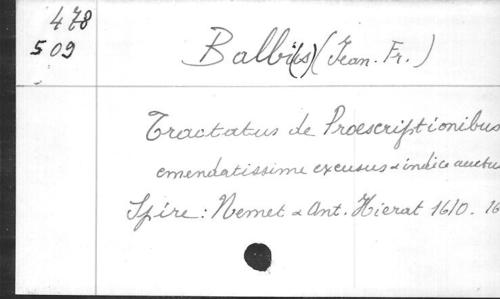 478
509
Balbi(s) (Jean. Fr.)
Tractatus de Proescriptionibus
emendatissime excusus & indice auctus
Spire: Nemet & Ant. Hierat 1610. 16